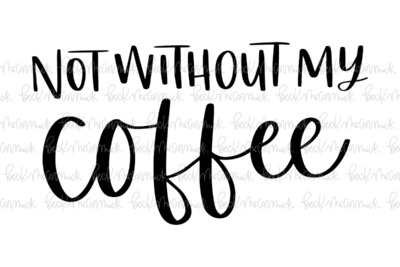 NOT WITHOUT MY
coffee